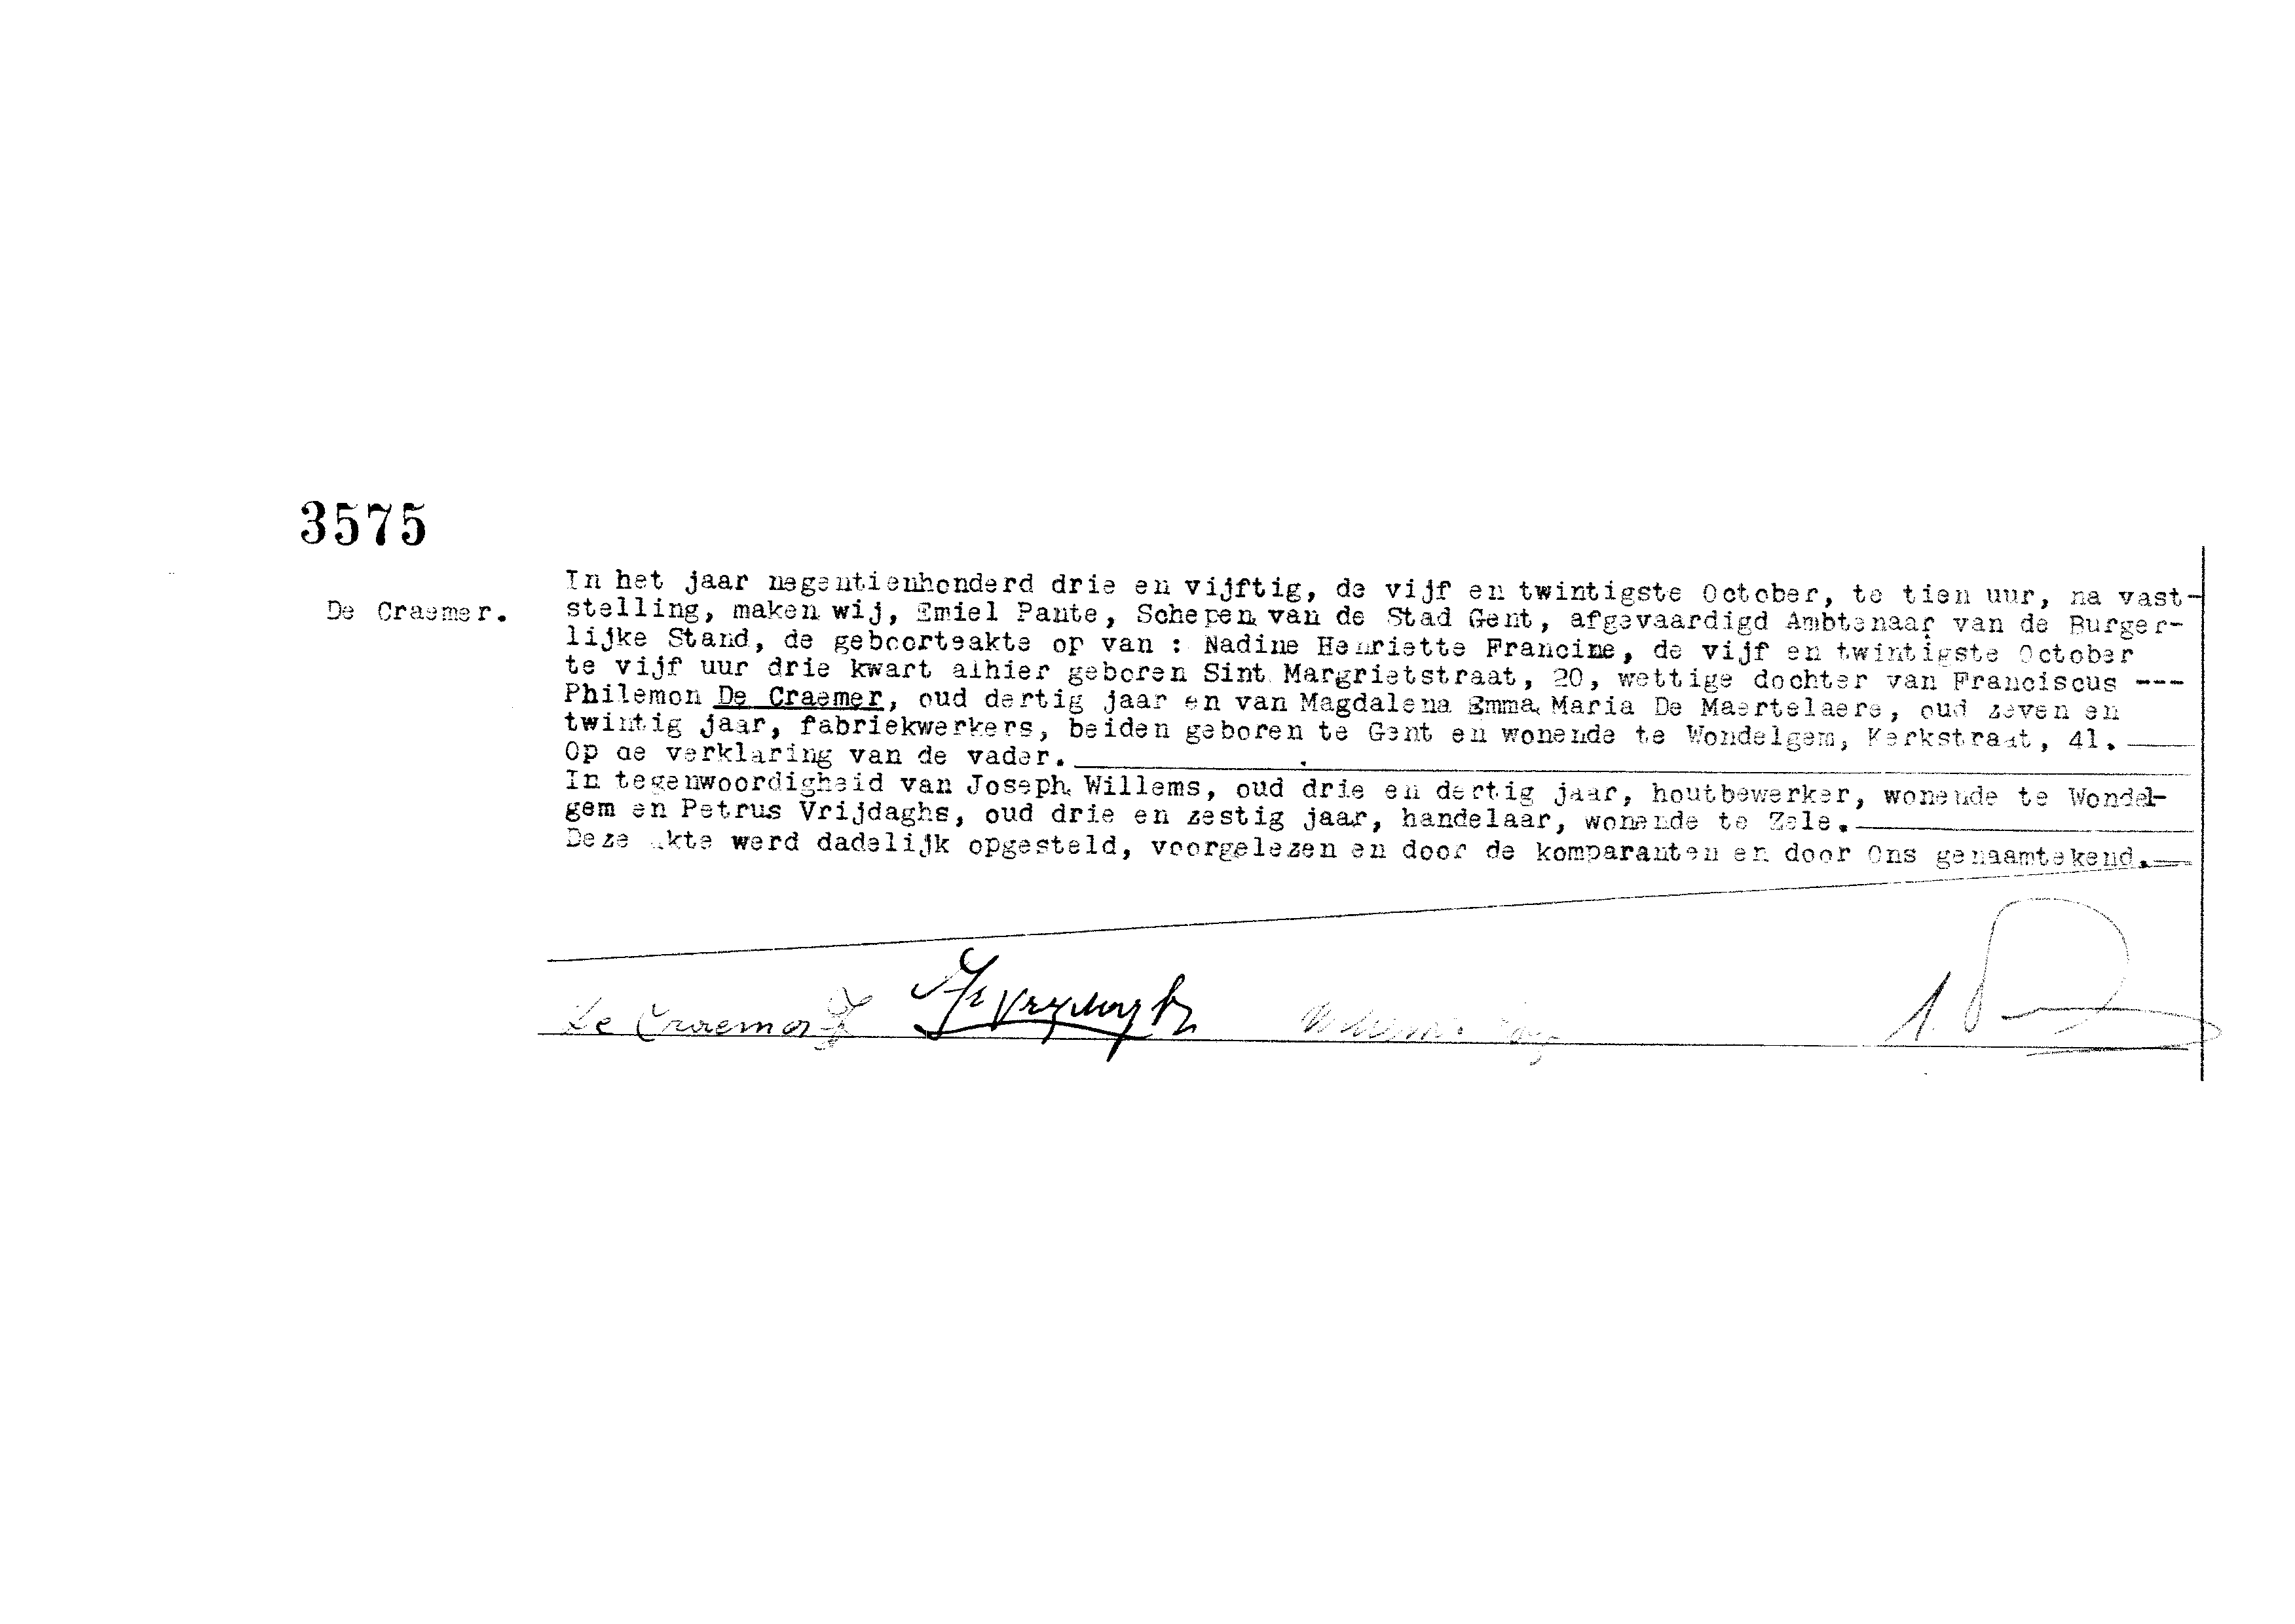 3575
De Craemer.
In het jaar negentienhonderd drie en vijftig, de vijf en twintigste October, te tien uur, na vast-
stelling, maken wij, Emiel Pante, Schepen van de Stad Gent, afgevaardigd Ambtenaar van de Burger-
lijke Stand, de geboorteakte op van : Nadine Henriette Francine, de vijf en twintigste October
te vijf uur drie kwart alhier geboren Sint Margrietstraat, 20, wettige dochter van Franciscus ---
Philemon De Craemer, oud dertig jaar en van Magdalena Emma Maria De Maertelaere, oud zeven en
twintig jaar, fabriekwerkers, beiden geboren te Gent en wonende te Wondelgem, Kerkstraat, 41.
Op de verklaring van de vader.
In tegenwoordigheid van Joseph Willems, oud drie en dertig jaar, houtbewerker, wonende te Wondel-
gem en Petrus Vrijdaghs, oud drie en zestig jaar, handelaar, wonende te Zele.
Deze akte werd dadelijk opgesteld, voorgelezen en door de komparanten en door Ons genaamtekend.
De Craemer F